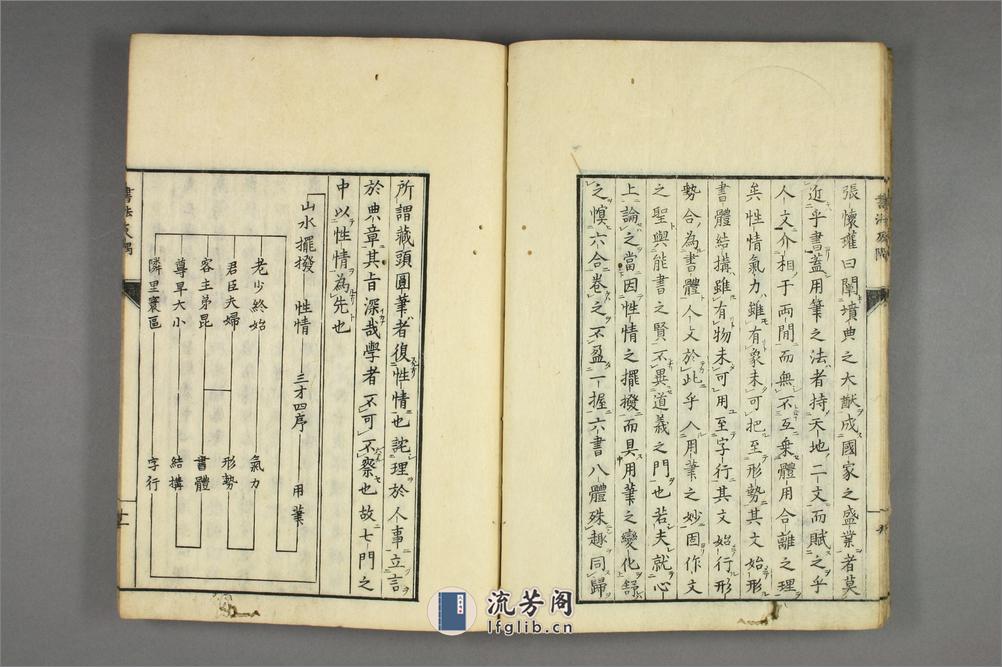 張懷瓘曰闡墳典之大猷成國家之盛業者莫
近乎書蓋用筆之法者持天地二文而賦之乎
人文介相于兩間而無不互乘體用合離之理
矣性情氣力雖有象未可把至形勢其文始形
書體結搆雖有物未可用至字行其文始行形
勢合為書體人文於此乎入用筆之妙因作文
之聖與能書之賢不異道義之門也若夫就心
上論之當因性情之擺撥而具用筆之變化舒
之慔六合卷之不盈一握六書八體殊趣同歸
所謂藏頭圓筆者復性情也詫理於人事立言
於典章其旨深哉學者不可不察也故七門之
中以性情為先也
山水擺撥 性情 三才四序 用筆
老少終始 氣力
君臣夫婦 形勢
容主弟昆 書體
尊卑大小 結搆
隣里寰區 字行
流芳阁
lfglib.cn